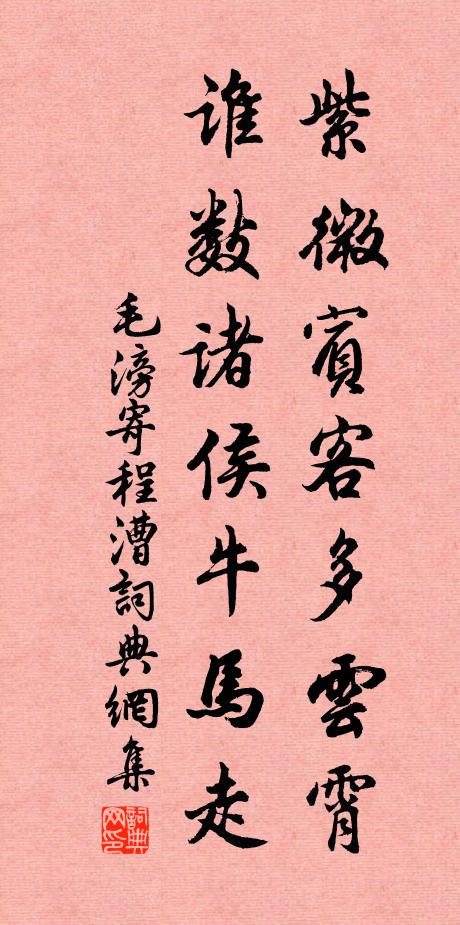 紫微賓客多雲霄
誰數諸侯牛馬走
毛滂寄程漕詞典網集
詞典网印